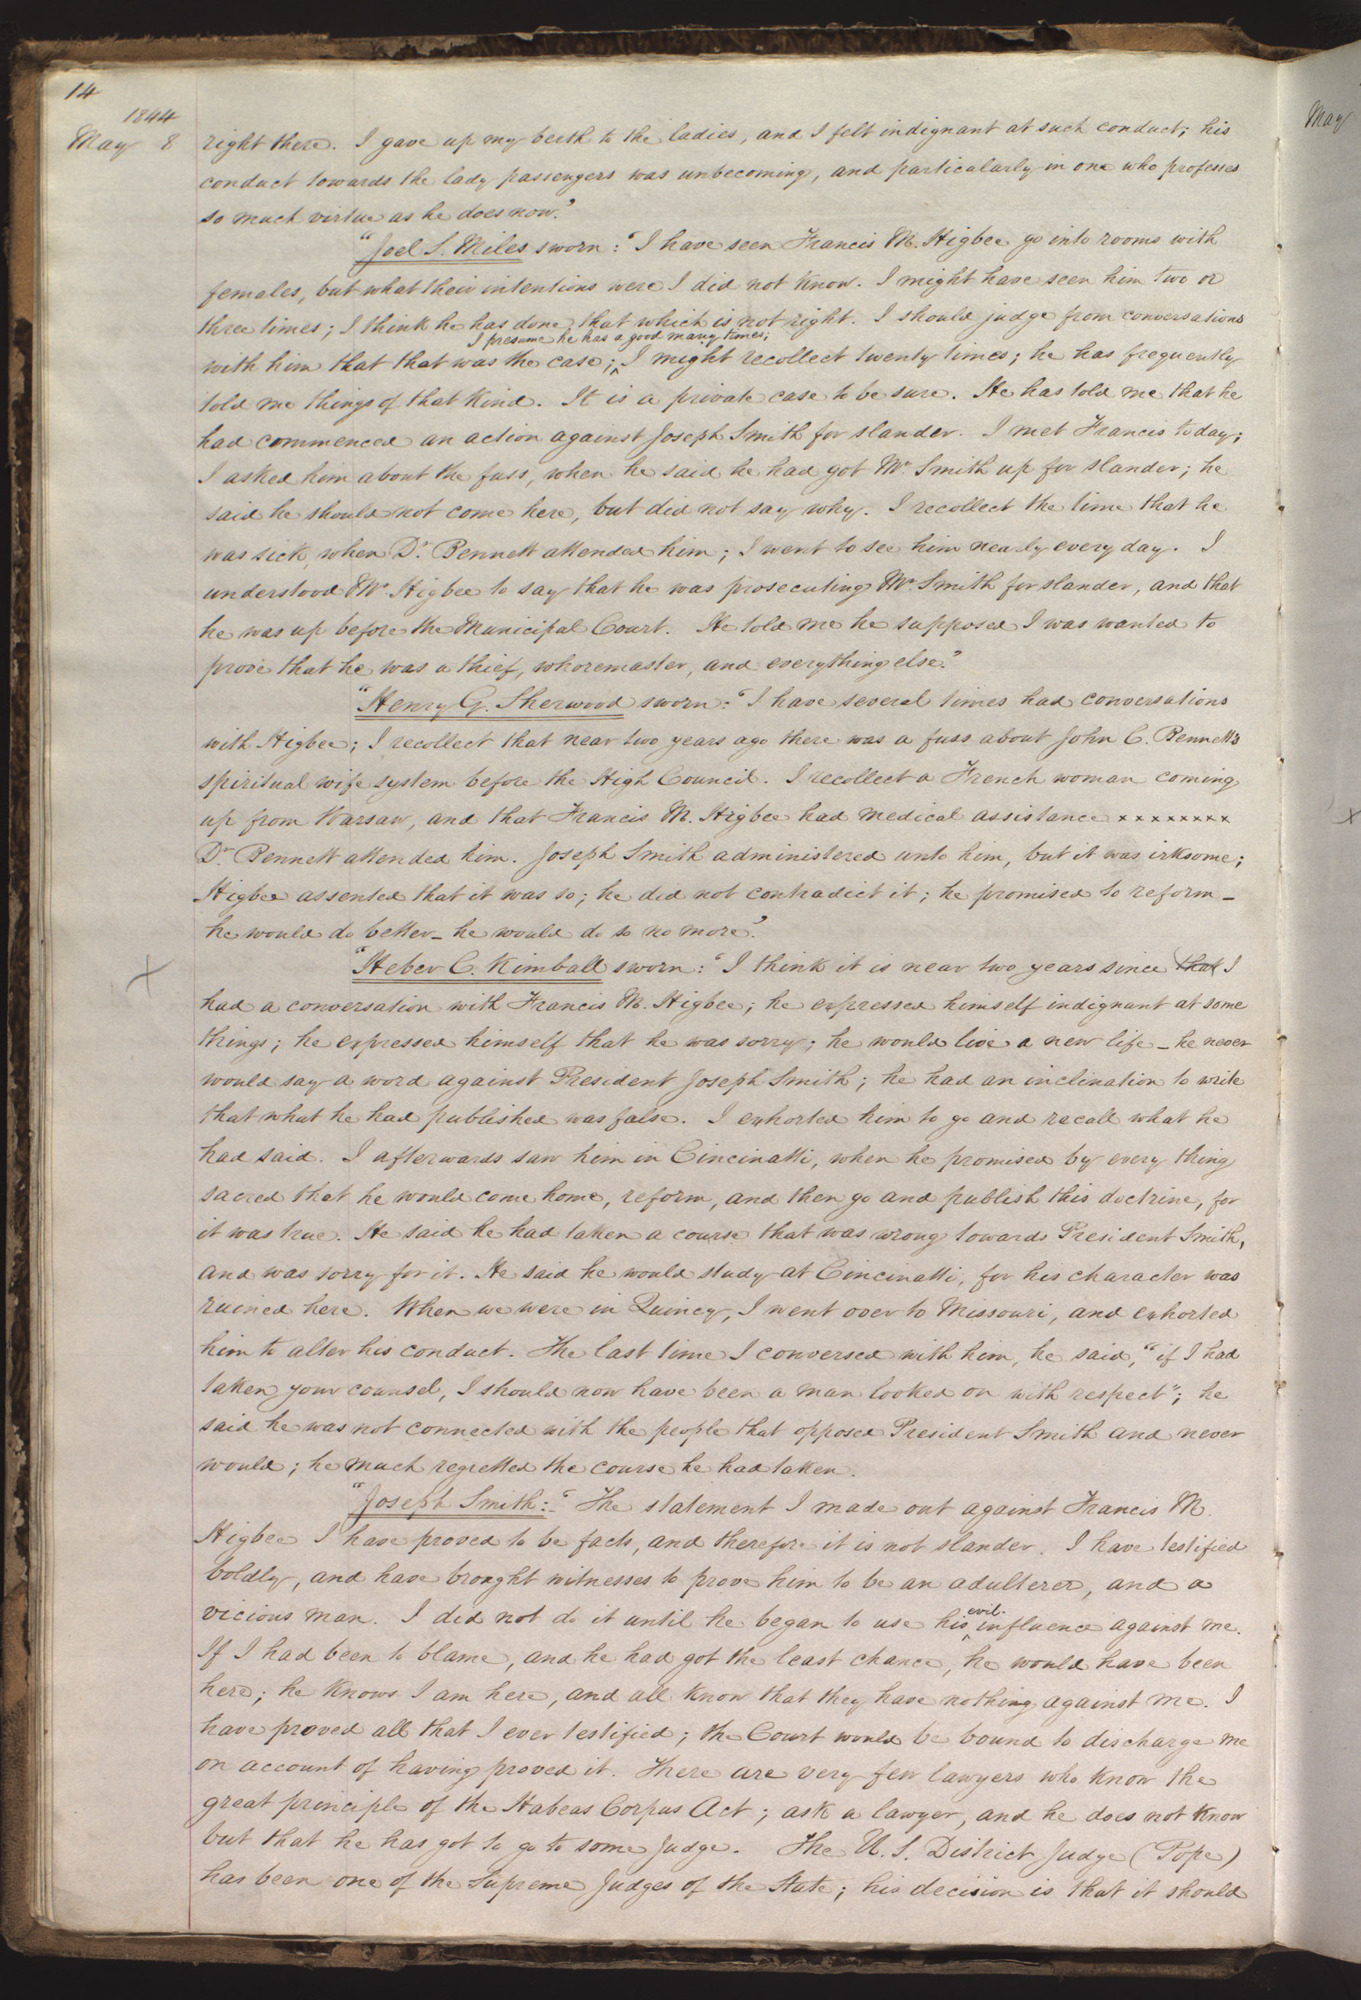 14
1844
May 8
right there. I gave up my berth to the ladies, and I felt indignant at such conduct; his
conduct towards the lady passengers was unbecoming, and particularly in one who professes
so much virtue as he does now."
"Joel S. Miles sworn: "I have seen Francis M. Higbee go into rooms with
females, but what their intentions were I did not know. I might have seen him two or
three times; I think he has done that which is not right. I should judge from conversations
I presume he has a good many times;
with him that that was the case; ^ I might recollect twenty times; he has frequently
told me things of that kind. It is a private case to be sure. He has told me that he
had commenced an action against Joseph Smith for slander. I met Francis to day;
I asked him about the fuss, when he said he had got Mr Smith up for slander; he
said he should not come here, but did not say why. I recollect the time that he
was sick, when Dr. Bennett attended him; I went to see him nearly every day. I
understood Mr Higbee to say that he was prosecuting Mr Smith for slander, and that
he was up before the Municipal Court. He told me he supposed I was wanted to
prove that he was a thief, whoremaster, and everything else."
"Henry G. Sherwood sworn: "I have several times had conversations
with Higbee; I recollect that near two years ago there was a fuss about John C. Bennett's
spiritual wife system before the High Council. I recollect a French woman coming
up from Warsaw, and that Francis M. Higbee had medical assistance × × × × × × × ×
Dr. Bennett attended him. Joseph Smith administered unto him, but it was irksome;
Higbee assented that it was so; he did not contradict it; he promised to reform—
he would do better— he would do so no more."
"Heber C. Kimball sworn: "I think it is near two years since that I
had a conversation with Francis M. Higbee; he expressed himself indignant at some
things; he expressed himself that he was sorry; he would live a new life— he never
would say a word against President Joseph Smith; he had an inclination to write
that what he had published was false. I exhorted him to go and recall what he
had said. I afterwards saw him in Cincinatti, when he promised by every thing
sacred that he would come home, reform, and then go and publish this doctrine, for
it was true. He said he had taken a course that was wrong towards President Smith,
and was sorry for it. He said he would study at Cincinatti, for his character was
ruined here. When we were in Quincy, I went over to Missouri, and exhorted
him to alter his conduct. The last time I conversed with him, he said, "if I had
taken your counsel, I should now have been a man looked on with respect"; he
said he was not connected with the people that opposed President Smith and never
would; he much regretted the course he had taken.
"Joseph Smith:— "The statement I made out against Francis M.
Higbee I have proved to be facts, and therefore it is not slander. I have testified
boldly, and have brought witnesses to prove him to be an adulterer, and a
evil
vicious man. I did not do it until he began to use his ^ influence against me.
If I had been to blame, and he had got the least chance, he would have been
here; he knows I am here, and all know that they have nothing against me. I
have proved all that I ever testified; the Court would be bound to discharge me
on account of having proved it. There are very few lawyers who know the
great principle of the Habeas Corpus Act; ask a lawyer, and he does not know
but that he has got to go to some Judge. The U. S. District Judge (Pope)
has been one of the Supreme Judges of the State; his decision is that it should
May